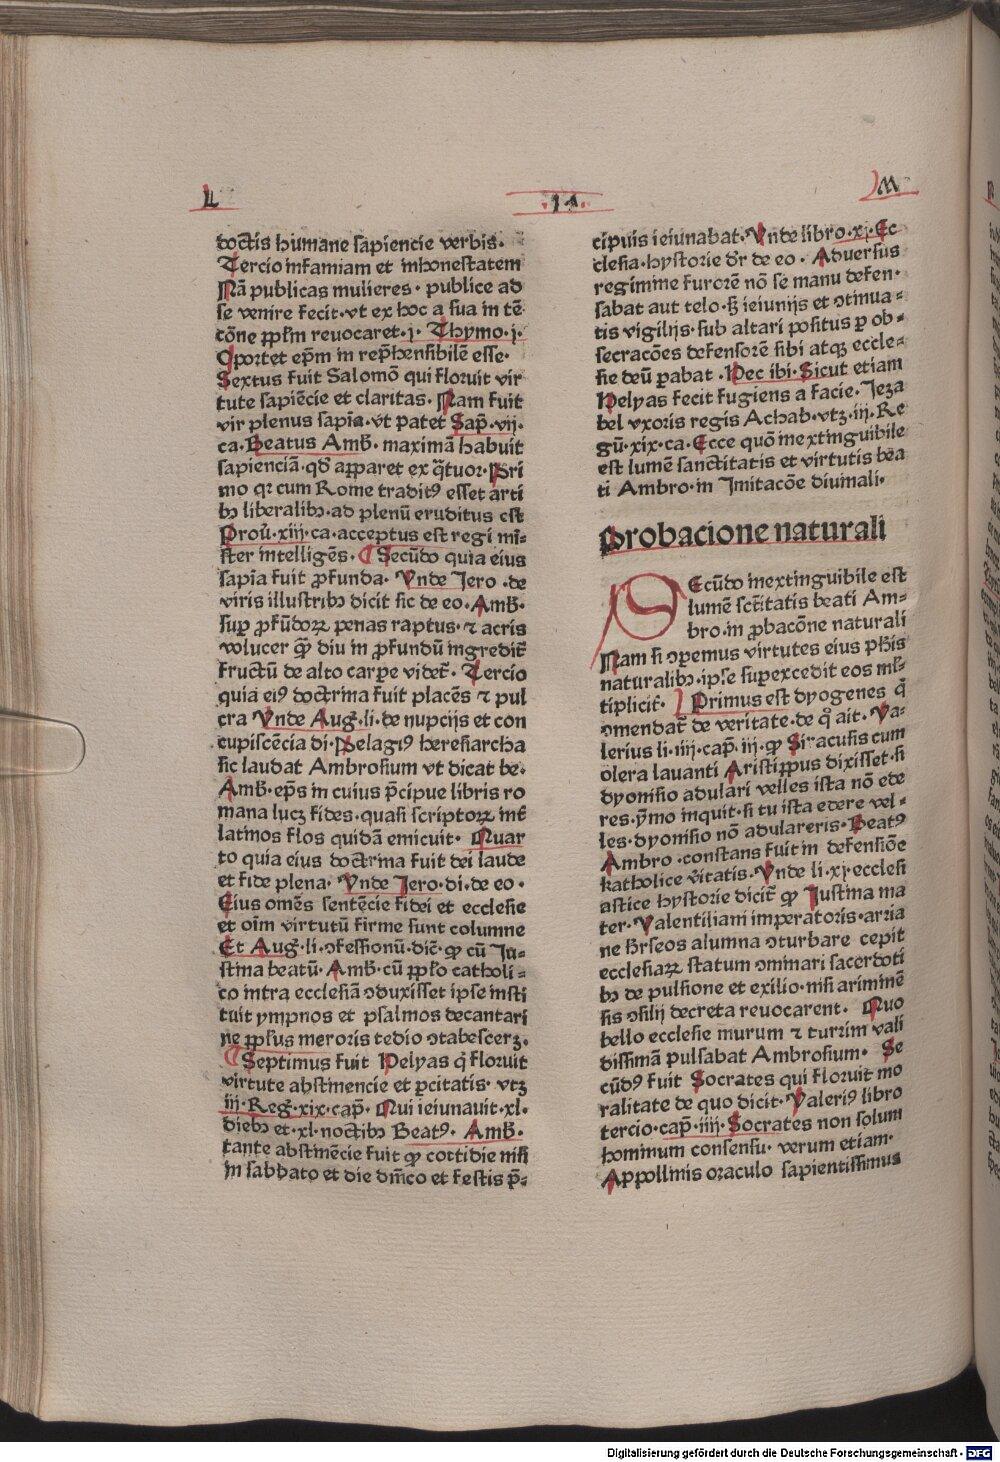 L
·11·
M
doctis humane sapiencie verbis·
Tercio infamiam et inhonestatem
Nā publicas mulieres· publice ad
se venire fecit·vt ex hoc a sua in tē
cōne ꝓpl̄m reuocaret·j· Thymo·j·
Oportet ep̄m in rep̄hensibilē esse·
Sextus fuit Salomō qui floruit vir
tute sapiēcie et claritas· Nam fuit
vir plenus sapīa·vt patet Sap̄·vij·
ca·Beatus Amb̄·maximā habuit
sapienciā·qd̄ apparet ex q̄tuor·Pri
mo qꝛ cum Rome traditꝰ esset arti
bꝫ liberalibꝫ·ad plenū eruditus est
Prou̇·xiij·ca·acceptus est regi mi⸗
ster intelligēs· ¶ Secūdo quia eius
sapīa fuit ꝓfunda· Vnde Jero ·de
viris illustribꝫ dicit sic de eo·Amb̄·
sup̲ ꝓfūdoꝝ penas raptus·⁊ acris
volucer qm̄ diu in ꝓfundū ingredit᷑
fructū de alto carpe videt᷑· Tercio
quia eiꝰ doctrina fuit placēs ⁊ pul
cra Vnde Aug̊·li·de nupcijs et con
cupiscēcia di·Pelagiꝰ heresiarcha
sic laudat Ambrosium vt dicat be·
Amb̄·ep̄s in cuius p̄cipue libris ro
mana lucꝫ fides·quasi scriptoꝝ int᷑
latinos flos quidā emicuit· Quar
to quia eius doctrina fuit dei laude
et fide plena· Vnde Jero·di·de eo·
Eius omēs sentēcie fidei et ecclesie
et oīm virtutū firme sunt columne
Et Aug̊·li·ꝯfessionū·dic̄·ꝙ cū Ju⸗
stina beatū· Amb̄·cū ꝓpl̄o catholi⸗
co intra ecclesiā ꝯduxisset ipse insti
tuit ympnos et psalmos decantari
ne ꝓpl̄us meroris tedio ꝯtabesceꝫ·
¶ Septimus fuit Helyas q̄ floruit
virtute abstinencie et ꝑcitatis· vtꝫ
iij·Reg̊·xix·cap̄· Qui ieiunauit·xl·
diebꝫ et·xl·noctibꝫ Beatꝰ· Amb̄·
tante abstinēcie fuit ꝙ cottidie nisi
in sabbato et die dm̄co et festis p̄⸗
cipuis ieiunabat·Vnde libro·xj·Ec
clesia·hystorie dr̄ de eo· Aduersus
regimine furorē nō se manu defen·
sabat aut telo·ꝫ ieiunijs et ꝯtinua⸗
tis vigilijs·sub altari positus ꝑ ob⸗
secracōes defensorē sibi atqꝫ eccle⸗
sie deū ꝑabat ·Hec ibi·Sicut etiam
Helyas fecit fugiens a facie·Jeza
bel vxoris regis Achab·vtꝫ·iij·Re
gū·xix·ca·Ecce quō inextinguibile
est lumē sanctitatis et virtutis bea
ti Ambro·in Imitacōe diuinali·
Probacione naturali
SEcūdo inextinguibile est
lumē sct̄itatis beati Am⸗
bro·in ꝓbacōne naturali
Nam si ꝯꝑemus virtutes eius ph̄is
naturalibꝫ·ipse sup̲excedit eos ml̄⸗
tiplicit᷑· Primus est dyogenes q̄
ꝯmendat᷑ de veritate·de q̊ ait· Va⸗
lerius li·iiij·cap̄·iij·ꝙ Siracusis cum
olera lauanti Aristippus dixisset·si
dyonisio adulari velles ista nō ede
res·ȳmo inquit·si tu ista edere vel⸗
les·dyonisio nō adulareris·Beatꝰ
Ambro·constans fuit in defensiōe
katholice v̄itatis·Vnde li·xj·ecclesi
astice hystorie dicit᷑ ꝙ Justina ma
ter·Valentiliani imperatoris·arria
ne h̄eseos alumna ꝯturbare cepit
ecclesiaꝝ statum ꝯminari sacerdoti
bꝫ de pulsione et exilio·nisi ariminē
sis ꝯsilij decreta reuocarent· Quo
bello ecclesie murum ⁊ turrim vali
dissimā pulsabat Ambrosium· Se
cūdꝰ fuit Socrates qui floruit mo
ralitate de quo dicit·Valeriꝰ libro
tercio·cap̄·iiij·Socrates non solum
hominum consensu· verum etiam·
Appollinis oraculo sapientissimus
Digitalisierung gefördert durch die Deutsche Forschungsgemeinschaft - DFG